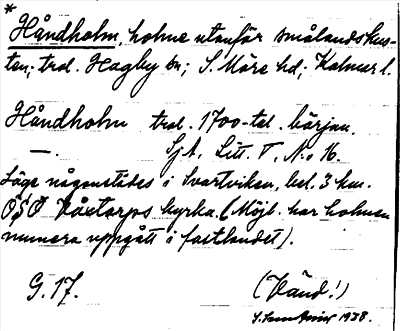 *
Håndholm, holme utanför smålandskus-
ten; trol. Hagby sn; S. Möre hd; Kalmar l.
Håndholm trol. 1700-tal. början.
—. Sjk. Litt. V, No 16.
Läge någonstädes i Svartviken, bel. 3 km.
OSO Växtorps kyrka. (Möjl. har holmen
numera uppgått i fastlandet).
G. 17. (Vänd!)
1938.